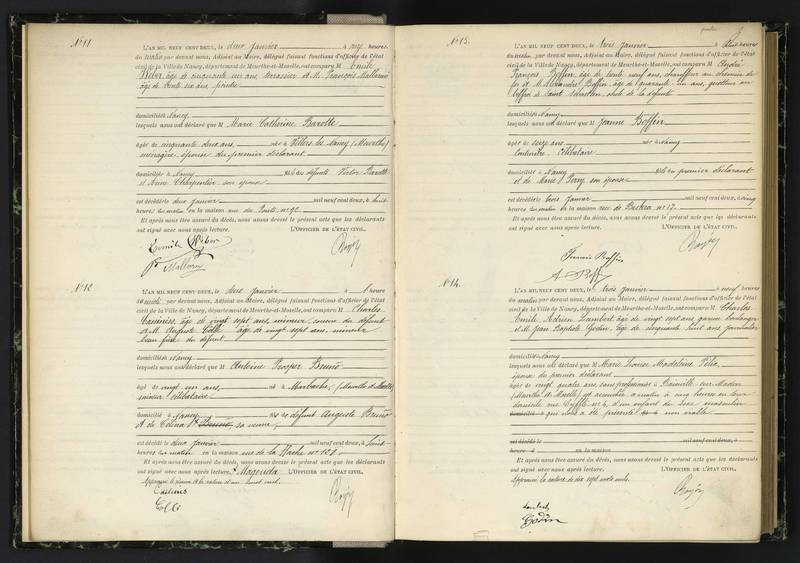 N° 11
L'AN MIL NEUF CENT DEUX, le deux janvier à heures
du par devant nous, Adjoint au Maire, délégué faisant fonctions d'officier de l'état
civil de la Ville de Nancy, département de Meurthe-et-Moselle, ont comparu M Emile
Weber, âge de cinquante un ans terrassier et M. François Mallarmé
âge de trente six ans, peintre
domiciliés à Nancy
lesquels nous ont déclaré que M Marie Catherine Barotte
âgée de cinquante deux ans, née à Villers les Nancy (Meurthe)
ménagère, épouse du premier déclarant
domiciliée à Nancy fille de défunts Victor Barotte
et Anne Charpentier son épouse
est décédée le deux janvier mil neuf cent deux, à huit
heures du matin en la maison rue du n° 92
Et après nous être assuré du décès, nous avons dressé le présent acte que les déclarants
ont signé avec nous après lecture. L'OFFICIER DE L'ÉTAT CIVIL,
Emile Weber
N° 12
L'AN MIL NEUF CENT DEUX, le deux janvier à 1 heure
par devant nous, Adjoint au Maire, délégué faisant fonctions d'officier de l'état
civil de la Ville de Nancy, département de Meurthe-et-Moselle, ont comparu M Charles
âge de vingt sept ans, mineur, du défunt
et M. Auguste âge de vingt sept ans, mineur
du défunt
domiciliés à Nancy
lesquels nous ont déclaré que M Antoine Prosper Bruno
âgé de vingt un ans né à Marbache, (Meurthe et Moselle)
mineur célibataire
domicilié à Nancy fils de défunt Auguste Bruno
et de Célina sa veuve
est décédé le deux janvier mil neuf cent deux, à huit
heures du matin en la maison rue de la Hache n° 124
Et après nous être assuré du décès, nous avons dressé le présent acte que les déclarants
ont signé avec nous après lecture. L'OFFICIER DE L'ÉTAT CIVIL,
N° 13.
L'AN MIL NEUF CENT DEUX, le trois janvier à huit heures
du matin, par devant nous, Adjoint au Maire, délégué faisant fonctions d'officier de l'état
civil de la Ville de Nancy, département de Meurthe-et-Moselle, ont comparu M
François Boffin, âge de trente neuf ans, chauffeur au chemin de
fer et M. Alexandre Boffin, âge de quarante un ans, questeur au
coffres de Saint Sébastien, oncle de la défunte
domiciliés à Nancy
lesquels nous ont déclaré que M Jeanne Boffin
âgée de seize ans née à Nancy
couturière, célibataire
domiciliée à Nancy fille du premier déclarant
et de Marie Perry son épouse
est décédée le trois janvier mil neuf cent deux, à cinq
heures du matin en la maison rue de n° 17
Et après nous être assuré du décès, nous avons dressé le présent acte que les déclarants
ont signé avec nous après lecture. L'OFFICIER DE L'ÉTAT CIVIL,
Francois Boffin
A. Boffin
N° 14.
L'AN MIL NEUF CENT DEUX, le trois janvier à neuf heures
du matin, par devant nous, Adjoint au Maire, délégué faisant fonctions d'officier de l'état
civil de la Ville de Nancy, département de Meurthe-et-Moselle, ont comparu M Charles
Emile Adrien Lambert, âge de vingt sept ans, garçon boulanger
et M. Jean Baptiste Godin, âge de cinquante huit ans, journalier
domiciliés à Nancy
lesquels nous ont déclaré que M Marie Louise Madeleine
épouse du premier déclarant
âgée de vingt quatre ans, sans profession née à Bainville sur Madon
(Meurthe et Moselle) est accouchée ce matin à cinq heures en leur
domicile rue n° 4, d'un enfant du sexe masculin
qui nous a été présenté non viable
est décédé le mil neuf cent deux, à
heures d en la maison
Et après nous être assuré du décès, nous avons dressé le présent acte que les déclarants
ont signé avec nous après lecture. L'OFFICIER DE L'ÉTAT CIVIL,
Approuvé la rature de dix sept mots nuls.
Lambert
Godin